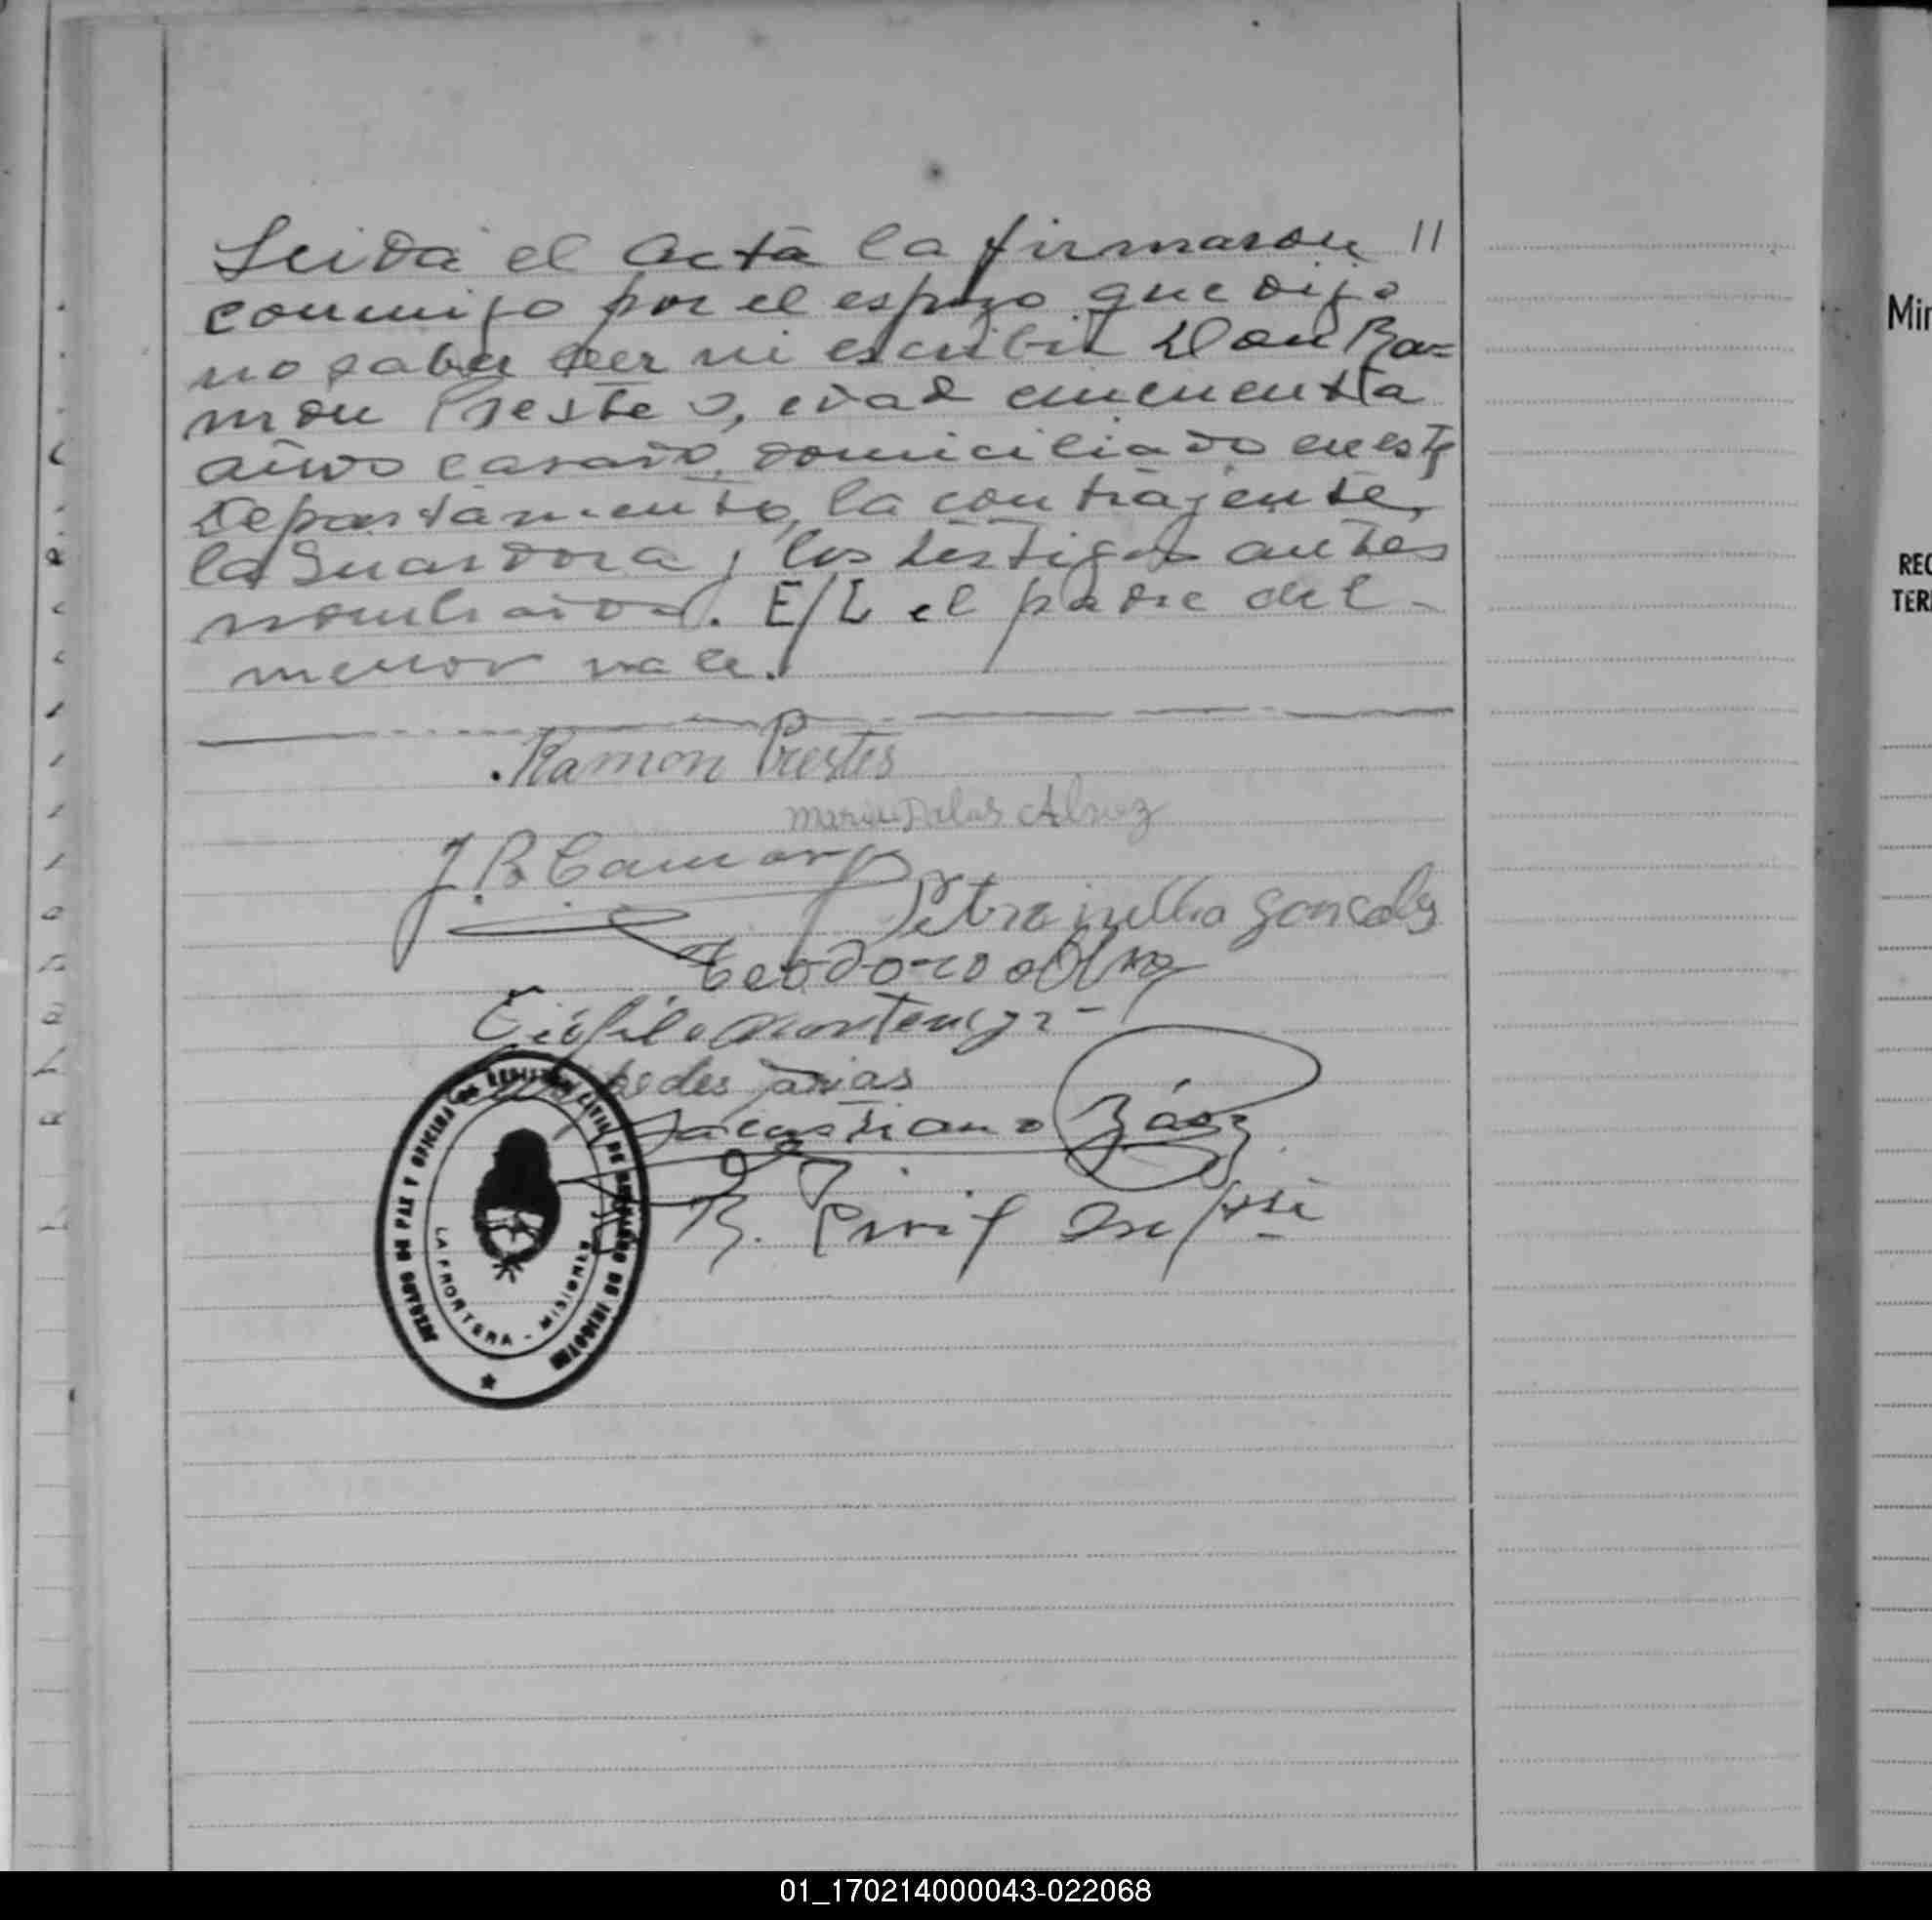 Leida el acta la firmaron //
conmigo por el espozo que dijo
no saber leer ni escribir Don Ra=
món Prestes, edad cincuenta
años casado, domiciliado en este
Departamento, la contrajente,
la Guardora y los testigos antes
nombrados. E/L el padre del -
menor vale.
Ramon Prestes
J. B. Camargo
Petronillia Goncalves
Teodoro
Teófilo Montenegr
Arias
Báez
B.
JUZGADO DE PAZ Y OFICINA DE REGISTRO CIVIL DE BERNARDO DE IRIGOYEN
LA FRONTERA - MISIONES
Min
REG
TER
01_170214000043-022068